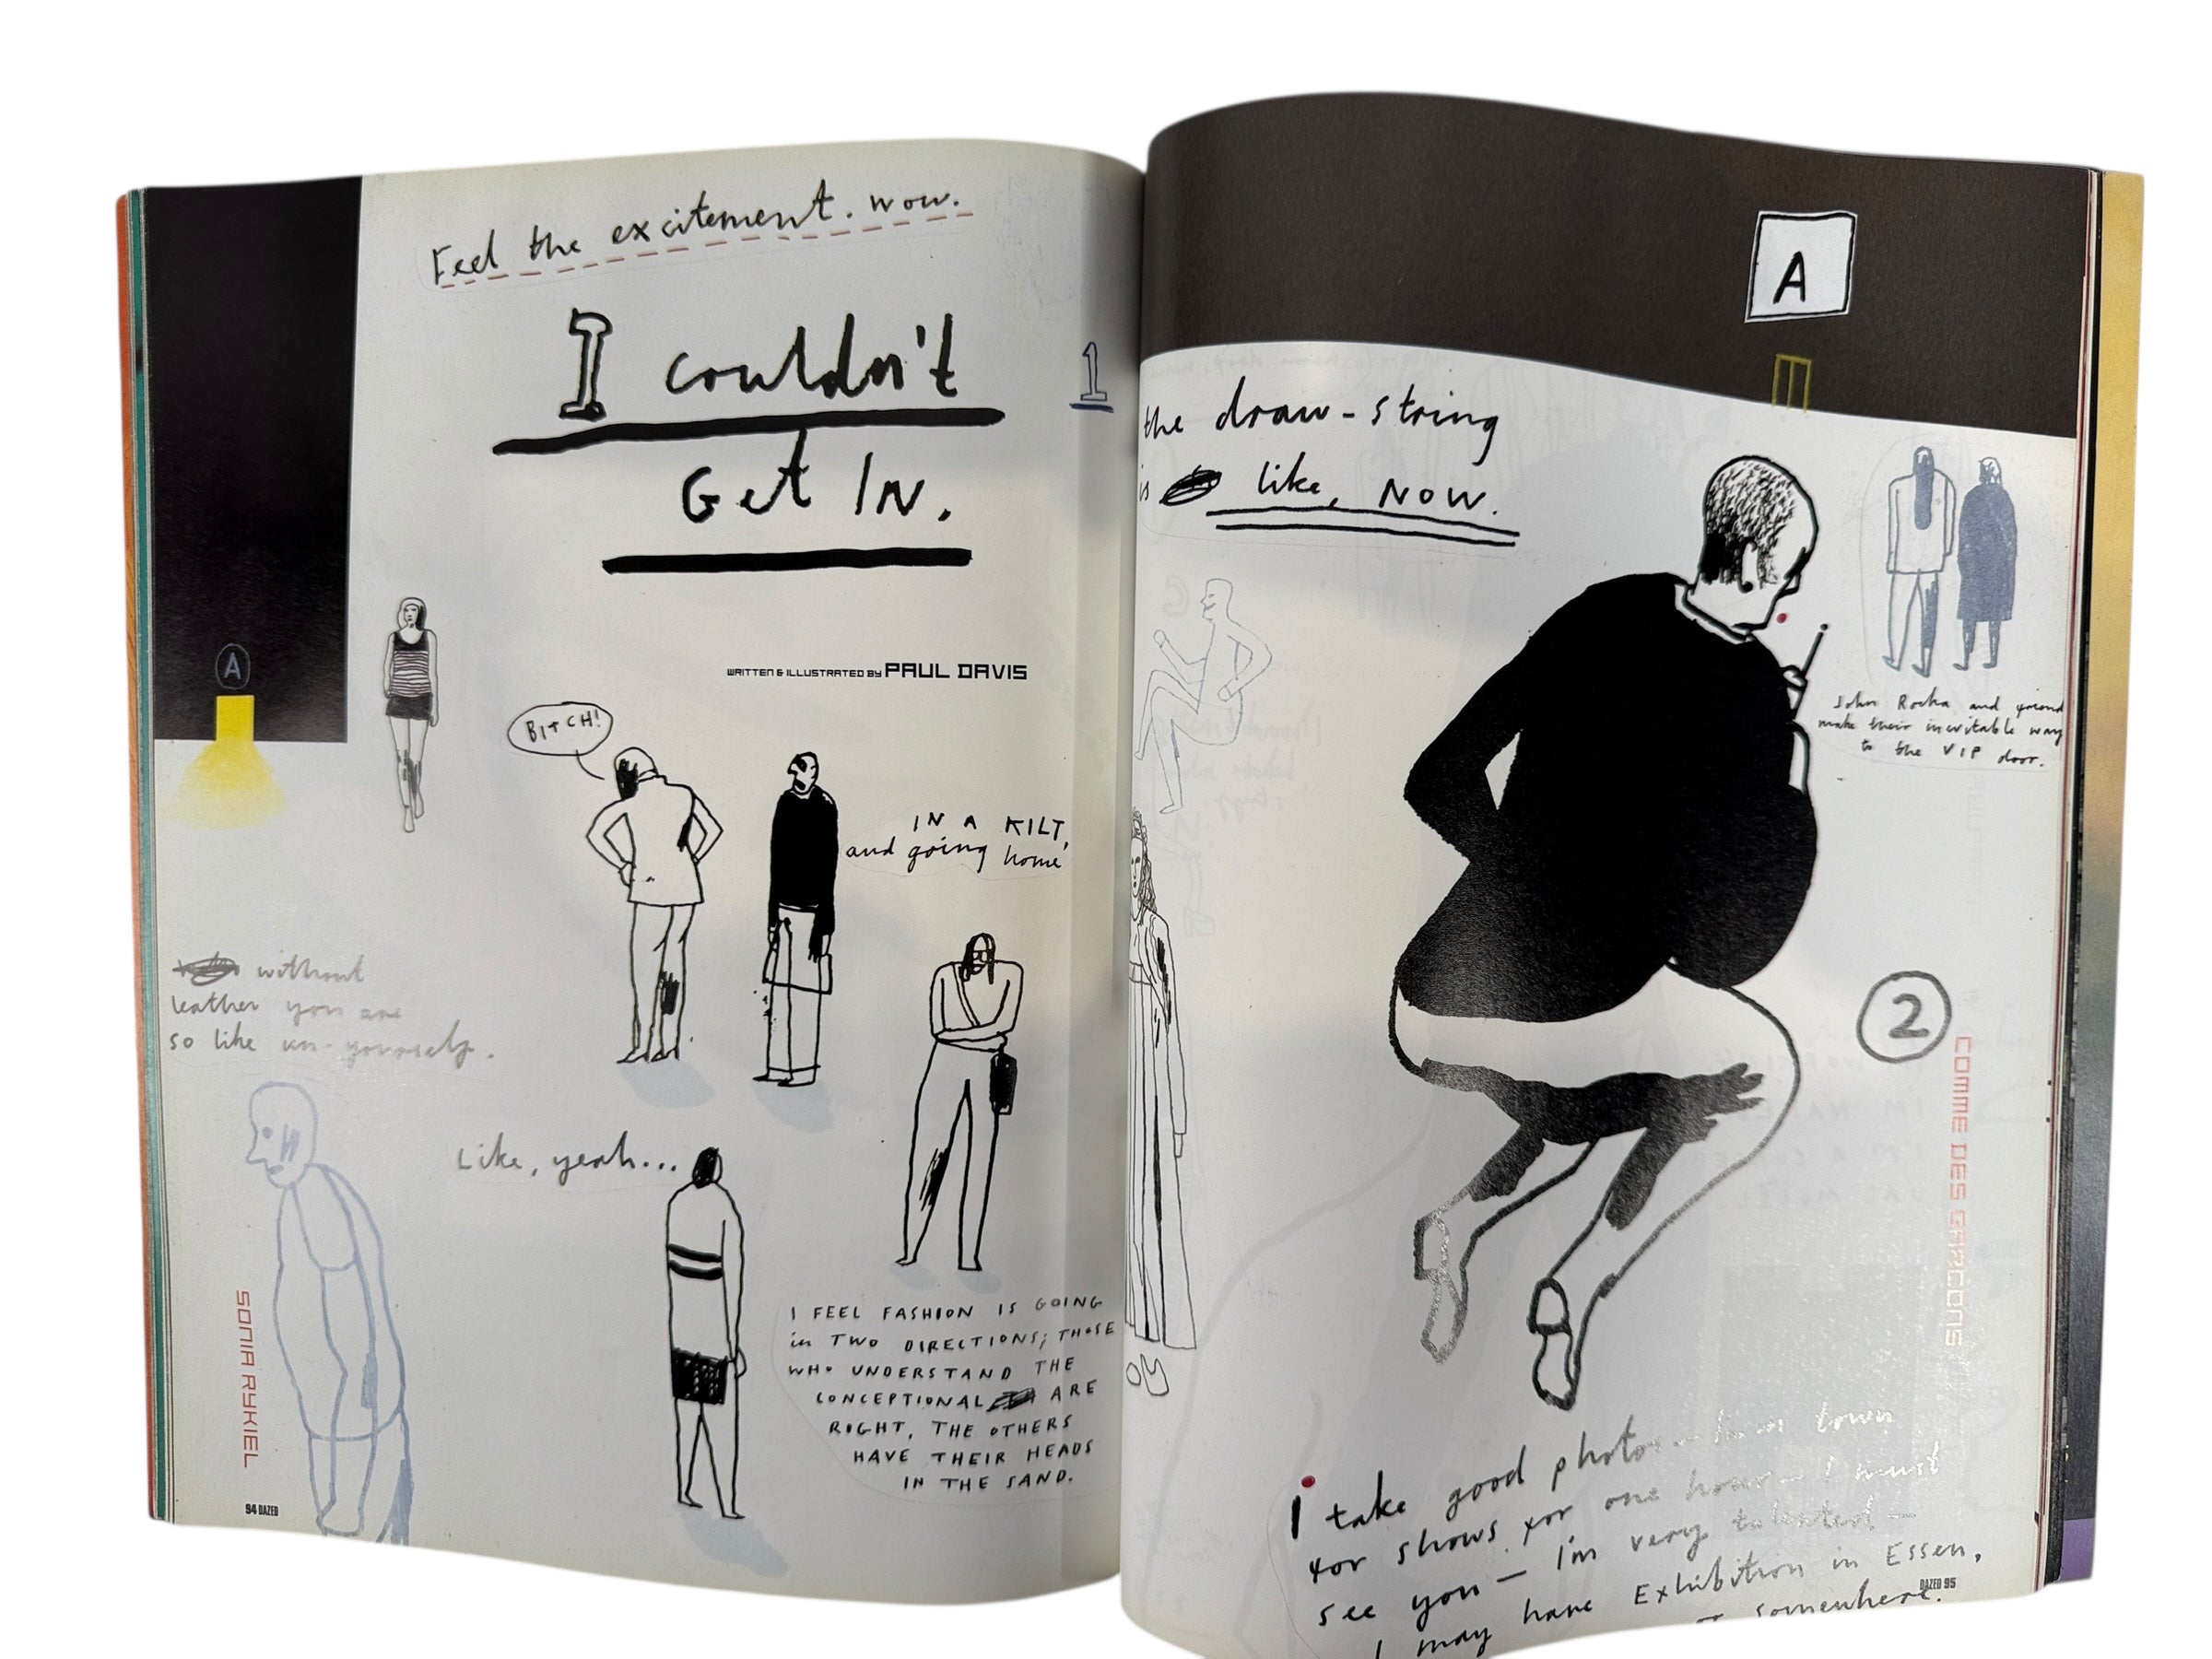 Feel the excitement. wow.
I couldn't
Get IN.
1
WRITTEN & ILLUSTRATED BY PAUL DAVIS
A
BITCH!
IN A KILT,
and going home
without
leather you are
so like un-yourself.
Like, yeah...
I FEEL FASHION IS GOING
in TWO DIRECTIONS; THOSE
WHO UNDERSTAND THE
CONCEPTIONAL ARE
RIGHT, THE OTHERS
HAVE THEIR HEADS
IN THE SAND.
SONIA RYKIEL
94 DAZED
A
the draw-string
is like, NOW.
John Rocha and friend
make their inevitable way
to the VIP door.
2
COMME DES GARCONS
i take good photos - I'm in town
for shows for one hour - I must
see you - I'm very talented -
I may have Exhibition in Essen,
somewhere.
DAZED 95